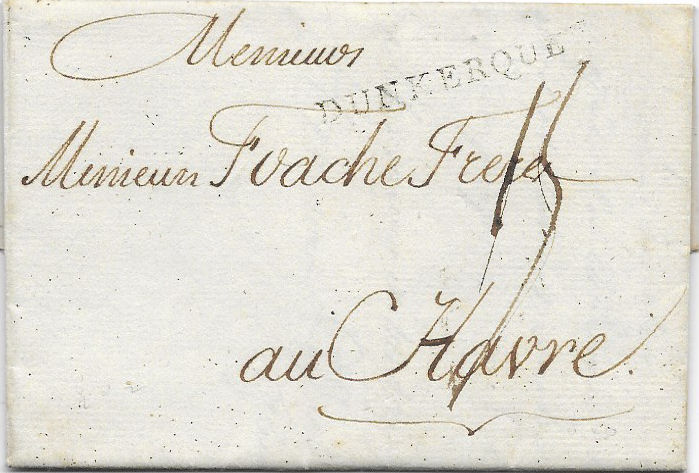 Messieurs
DUNKERQUE
Messieurs Foache Freres
15
au Havre.